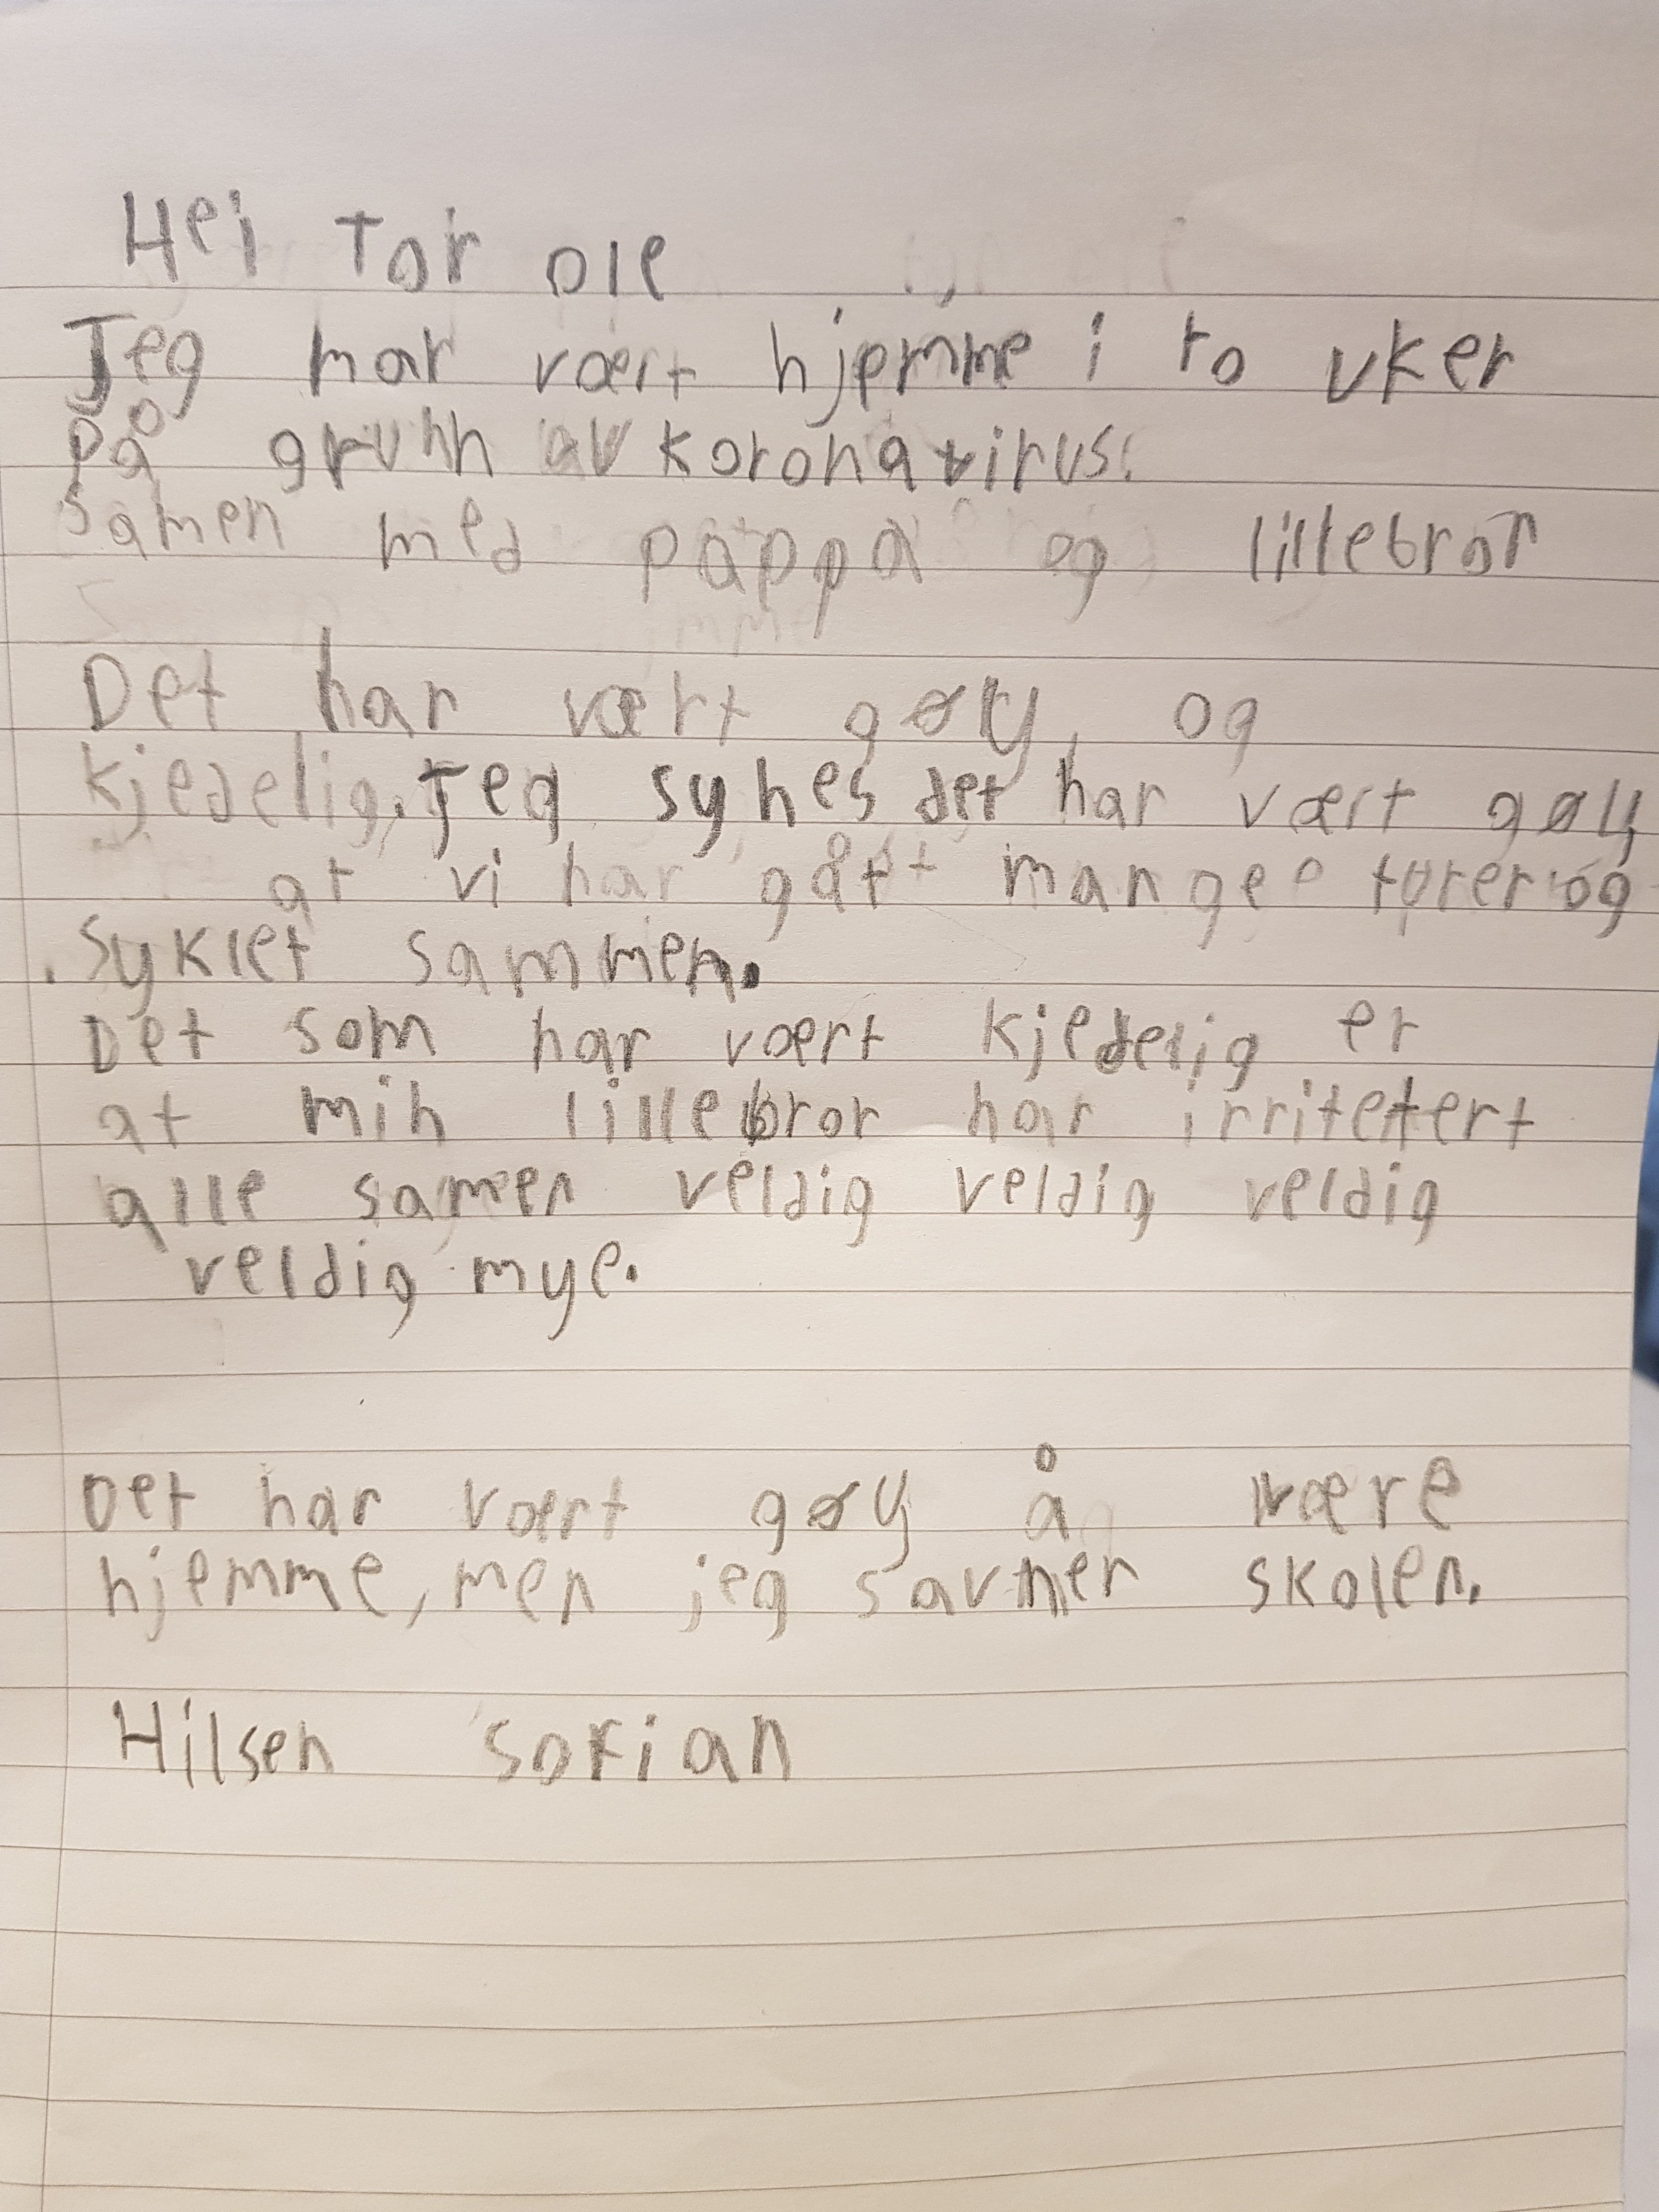 Hei Tor ole
Jeg har vært hjemme i to uker
på grunn av koronavirus.
samen med pappa og lillebror
Det har vært gøy, og
kjedelig. Jeg synes det har vært gøy
at vi har gått mange turer og
syklet sammen.
Det som har vært kjedelig er
at min lillebror har irritetert
alle samen veldig veldig veldig
veldig mye.
Det har vært gøy å være
hjemme, men jeg savner skolen.
Hilsen Sofian